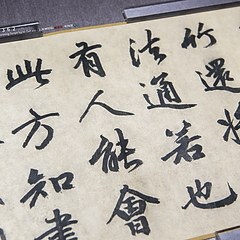 竹還
法通若也
有人能會
此方知書